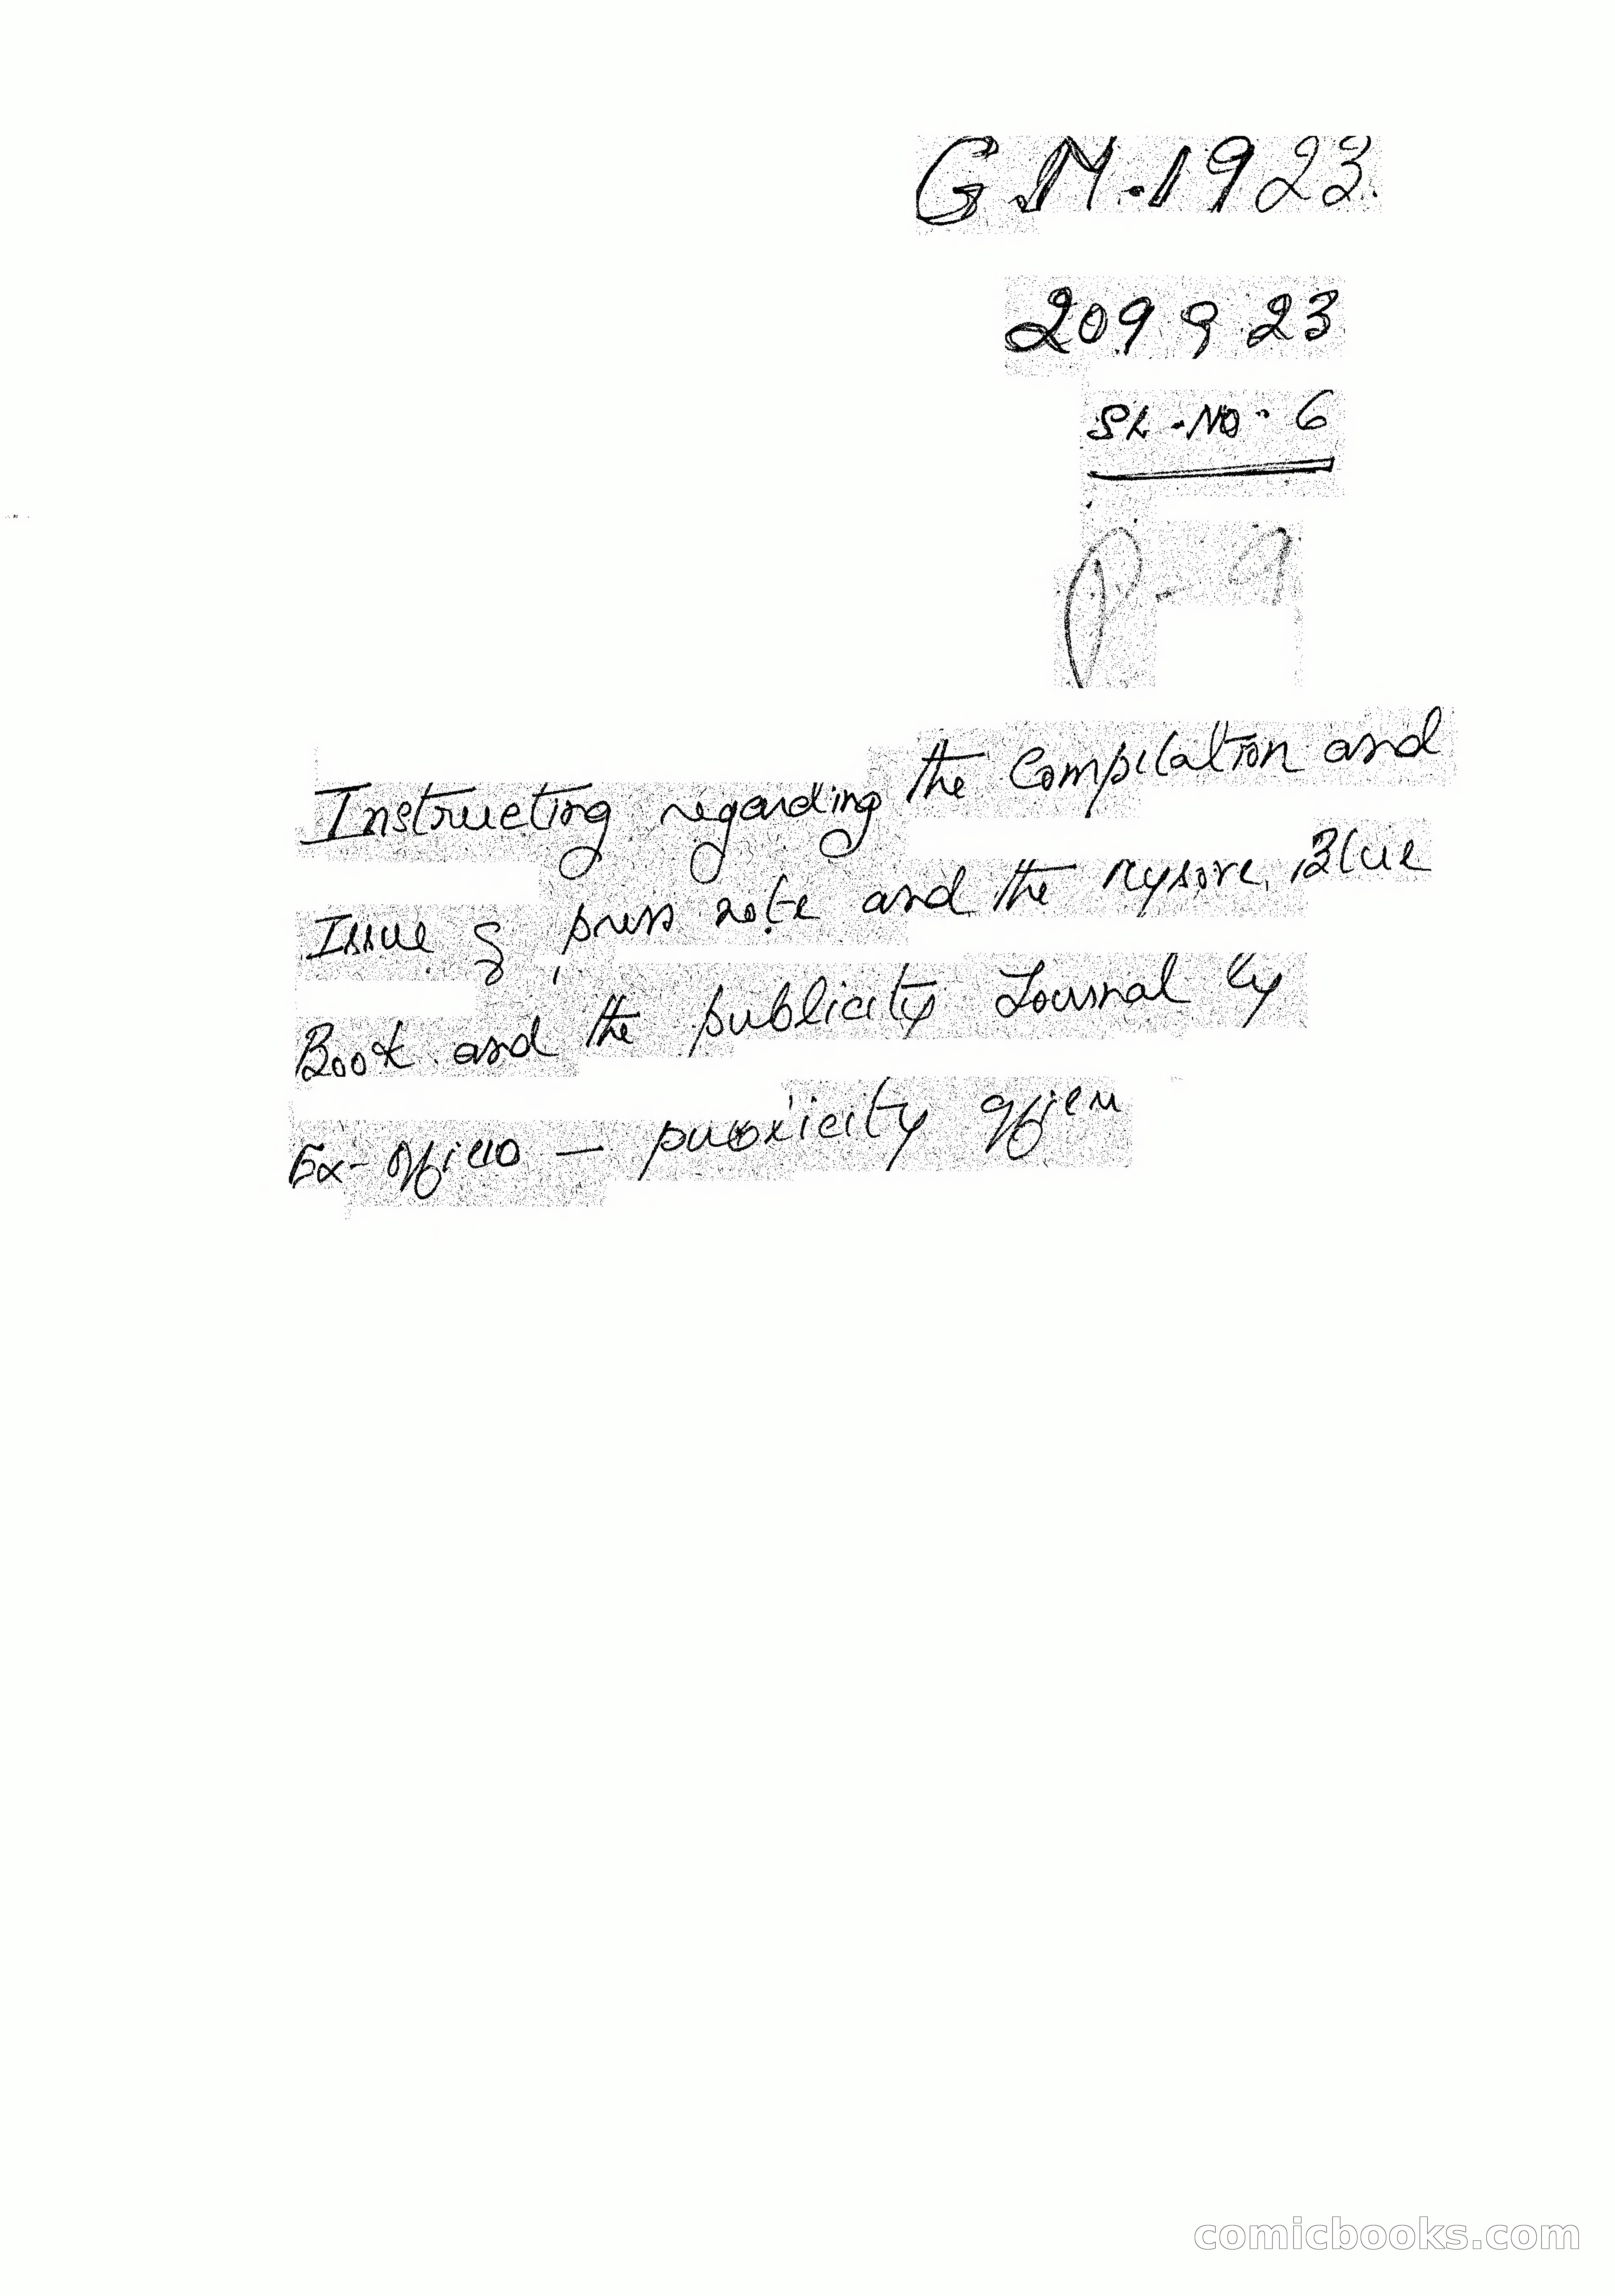 G.M.1923.
209 9 23
SL.No. 6
P-9
Instructing regarding the Compilation and
Issue of press note and the Mysore Blue
Book and the publicity Journal by
Ex-officio - publicity officer
comicbooks.com